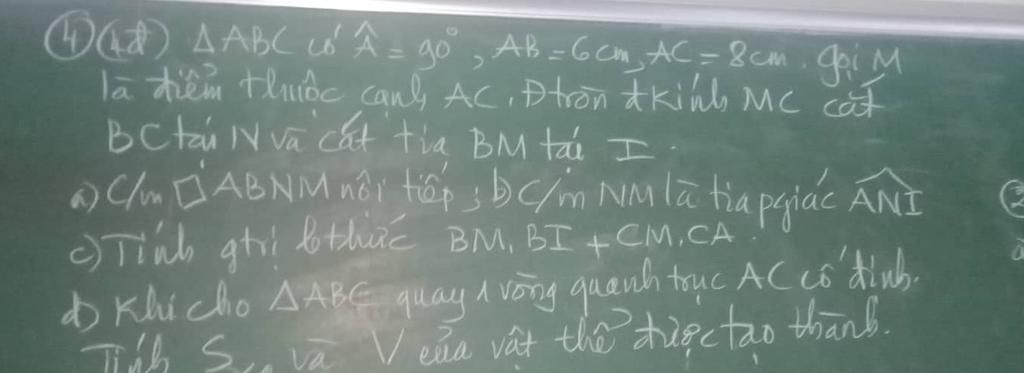 ④ (4đ) ΔABC có Â = 90°, AB = 6cm, AC = 8cm. gọi M
là điểm thuộc cạnh AC. Đtròn đkính MC cắt
BC tại N và cắt tia BM tại I.
a) C/m □ ABNM nội tiếp; b) C/m NM là tia pgiác ANI
c) Tính gtrị bthức BM. BI + CM. CA.
d) Khi cho ΔABC quay 1 vòng quanh trục AC cố định.
Tính và V của vật thể được tạo thành.